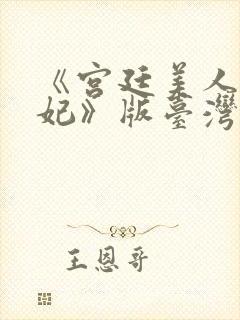 《宫廷美人
妃》版臺灣
王恩哥